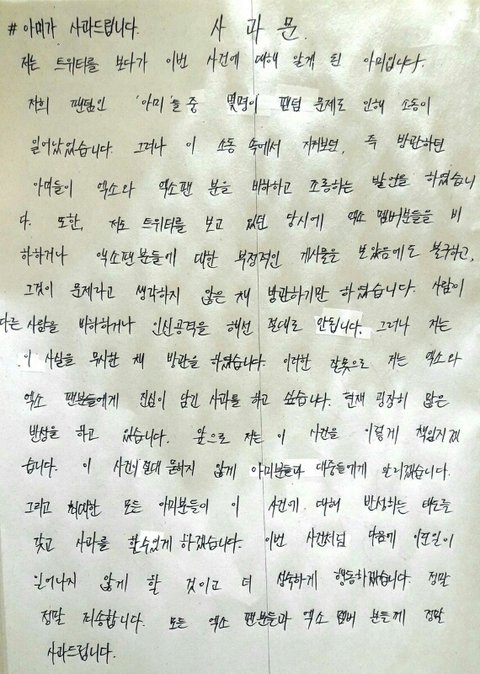 #아미가 사과드립니다. 사과문.
저는 트위터를 보다가 이번 사건에 대해 알게 된 아미입니다.
저희 팬덤인 '아미'들 중 몇명이 팬덤 문제로 인해 소동이
일어났었습니다. 그러나 이 소동 속에서 지켜보던, 즉 방관하던
아미들이 엑소와 엑소팬 분을 비하하고 조롱하는 발언을 하였습니
다. 또한, 저도 트위터를 보고 있던 당시에 엑소 멤버분들을 비
하하거나 엑소팬분들에 대한 부정적인 게시물을 보았음에도 불구하고,
그것이 문제라고 생각하지 않은 채 방관하기만 하였습니다. 사람이
다른 사람을 비하하거나 인신공격을 해선 절대로 안됩니다. 그러나 저는
이 사실을 무시한 채 방관을 하였습니다. 이러한 잘못으로 저는 엑소와
엑소 팬분들에게 진심이 담긴 사과를 하고 싶습니다. 현재 굉장히 많은
반성을 하고 있습니다. 앞으로 저는 이 사건을 이렇게 책임지겠
습니다. 이 사건이 절대 묻히지 않게 아미분들과 대중들에게 알리겠습니다.
그리고 최대한 모든 아미분들이 이 사건에 대해 반성하는 태도를
갖고 사과를 할수있게 하겠습니다. 이번 사건처럼 다음에 이런일이
일어나지 않게 할 것이고 더 성숙하게 행동하겠습니다. 정말
정말 죄송합니다. 모든 엑소 팬분들과 엑소 멤버 분들께 정말
사과드립니다.